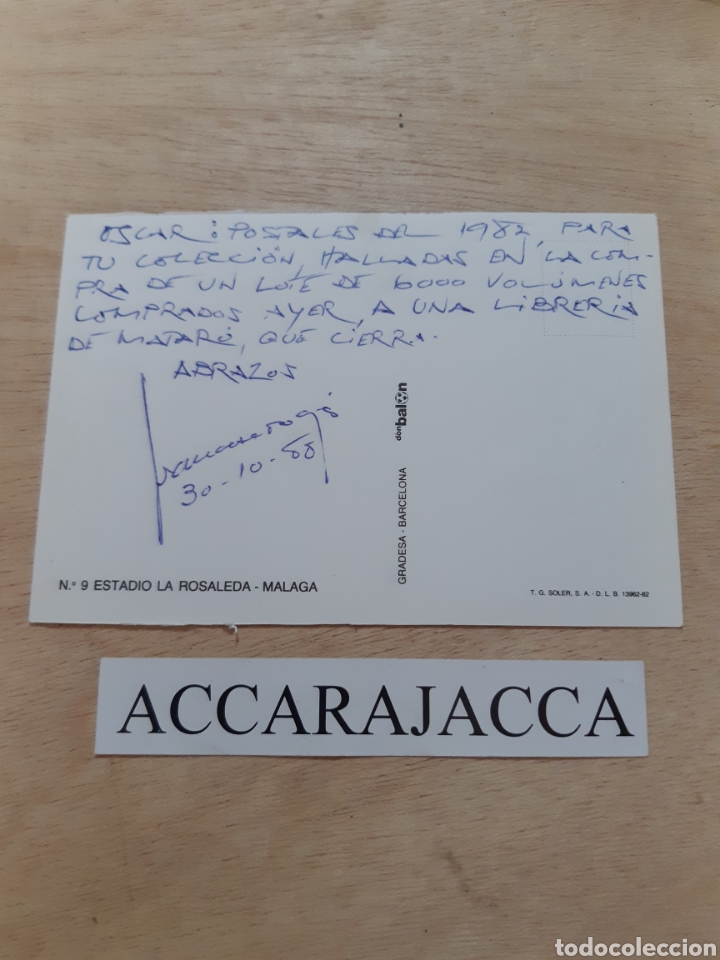 OSCAR: POSTALES DEL 1982, PARA
TU COLECCIÓN, HALLADAS EN LA COM-
PRA DE UN LOTE DE 6000 VOLÚMENES
COMPRADOS AYER, A UNA LIBRERIA
DE MATARÓ, QUE CIERRA.
ABRAZOS
30-10-88
don balón
GRADESA - BARCELONA
N.º 9 ESTADIO LA ROSALEDA - MALAGA
T. G. SOLER, S. A. - D. L. B. 13962-82
ACCARAJACCA
todocoleccion